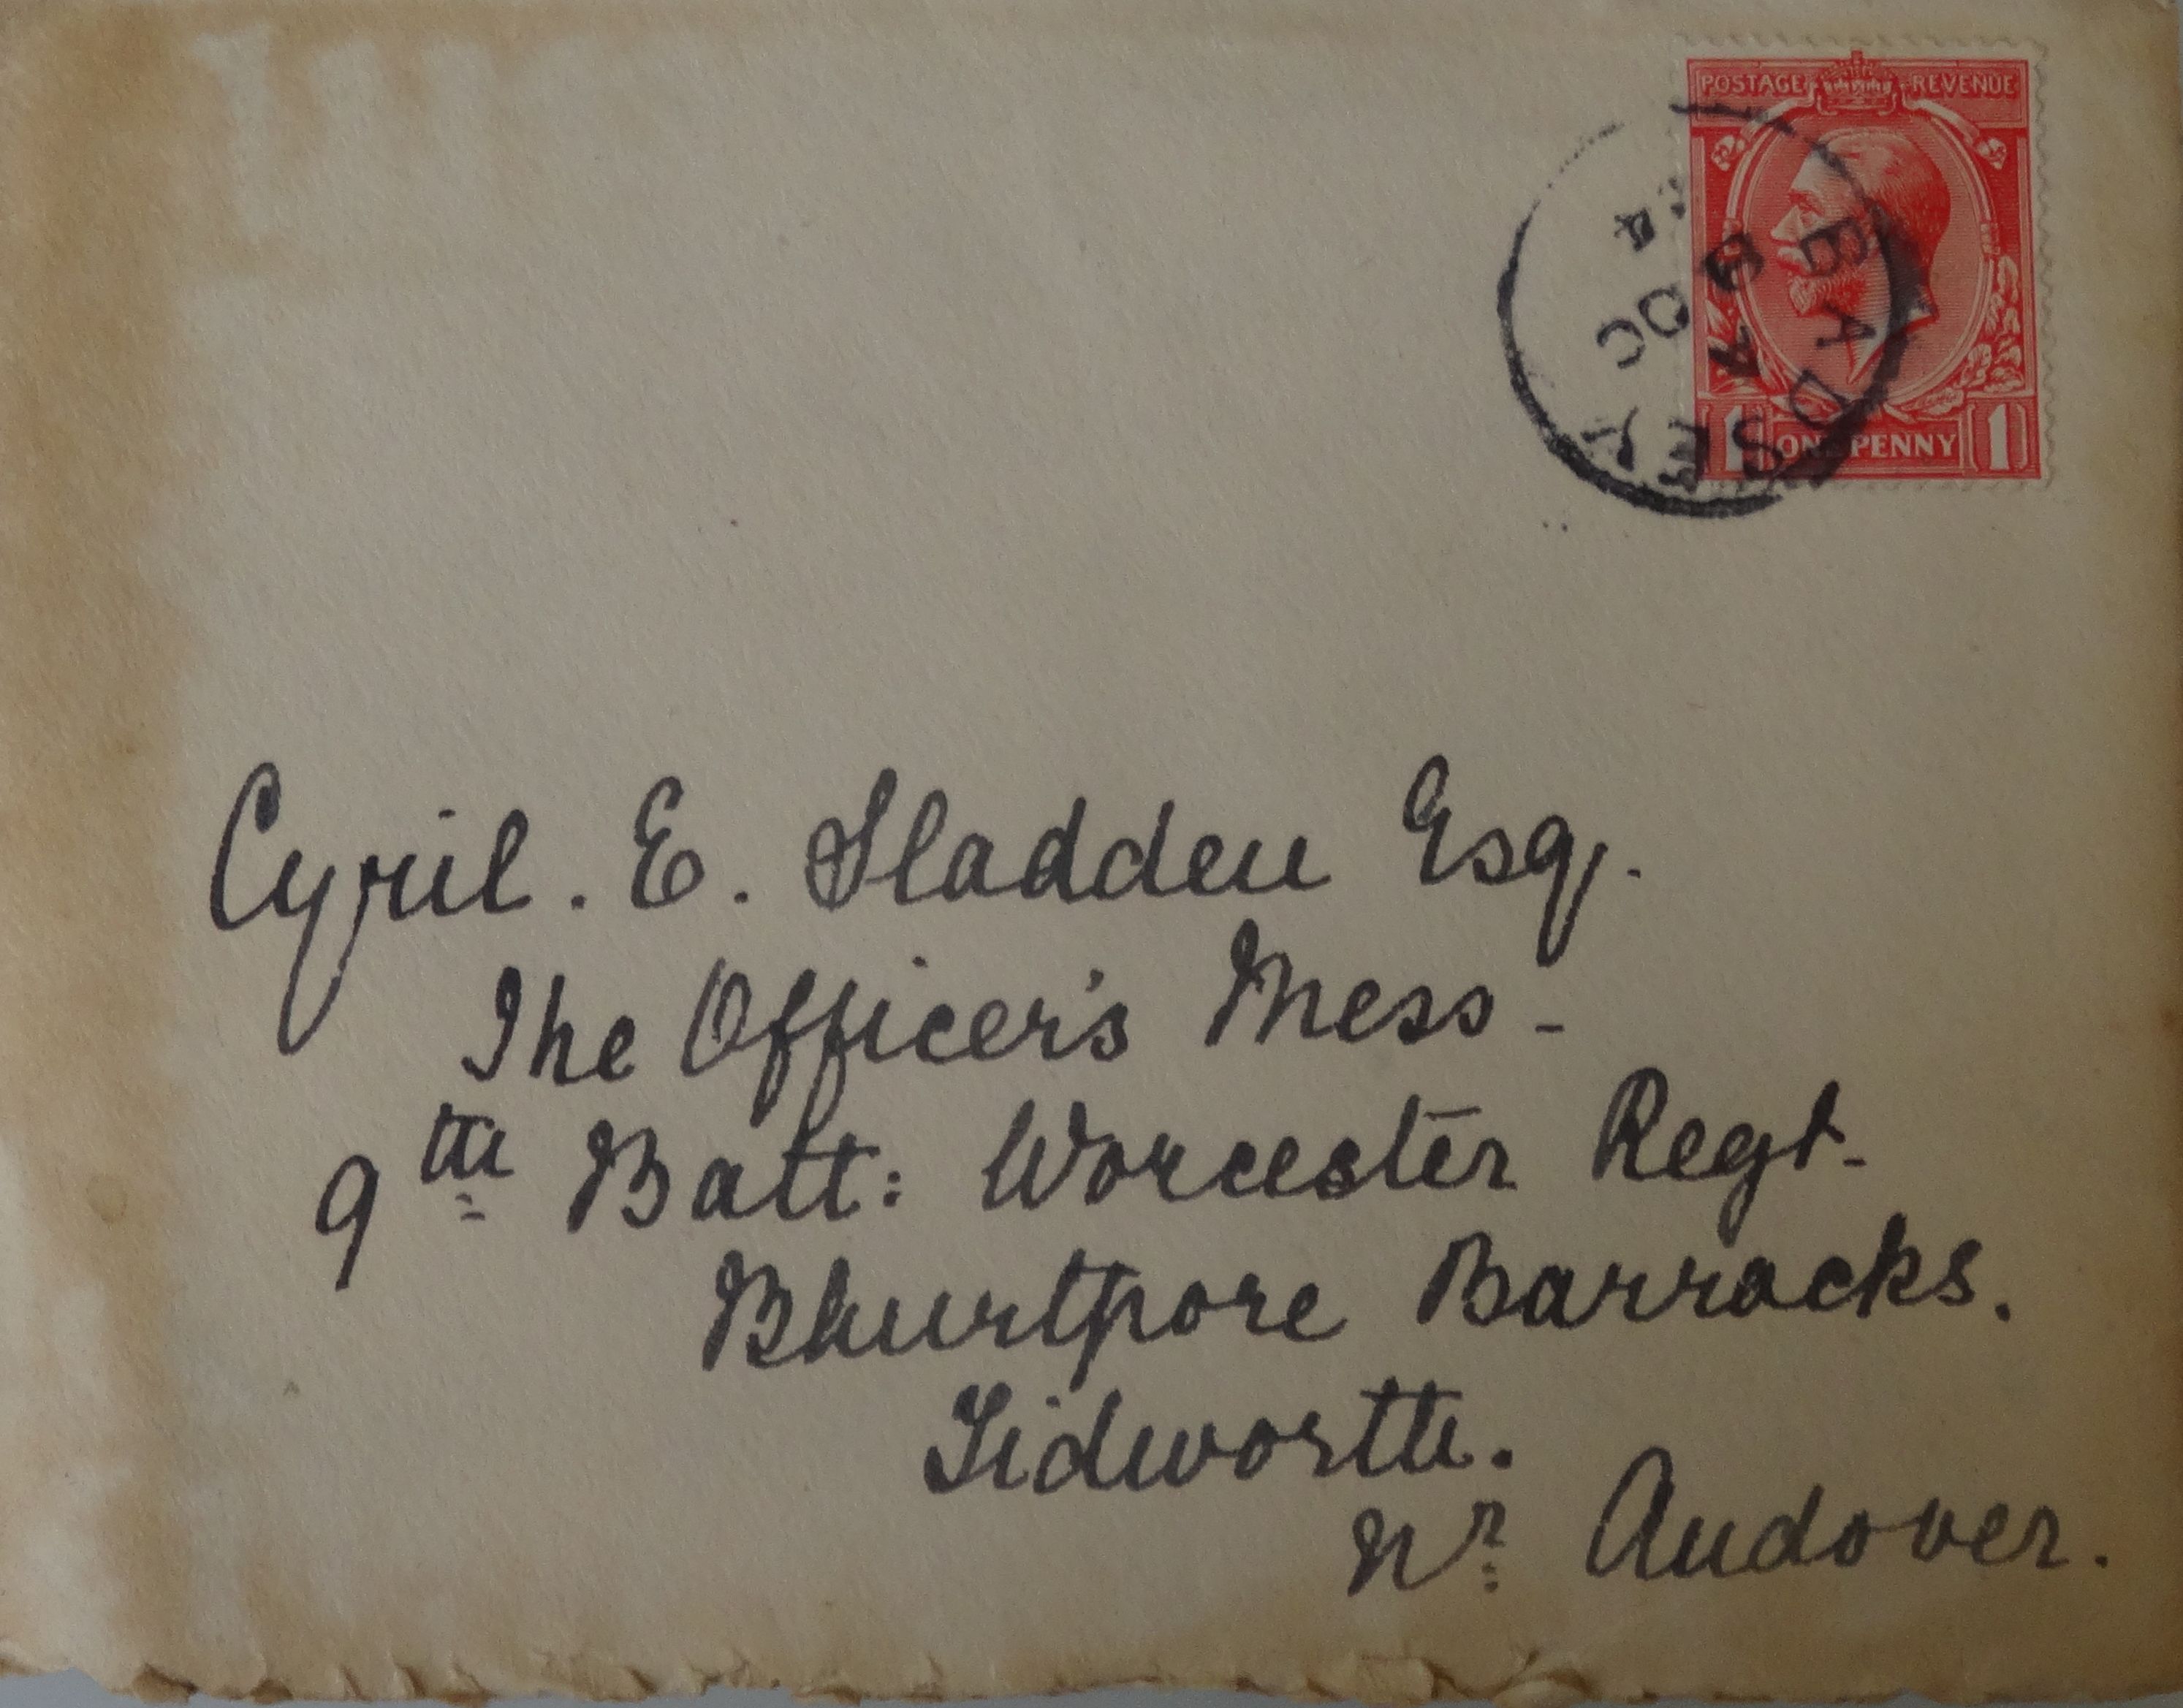 POSTAGE REVENUE
BADSEY
A
OC
4
1 ONE PENNY 1
Cyril. E. Sladden Esq.
The Officer's Mess -
9th Batt: Worcester Regt.
Bhurtpore Barracks.
Tidworth.
Nr Andover.